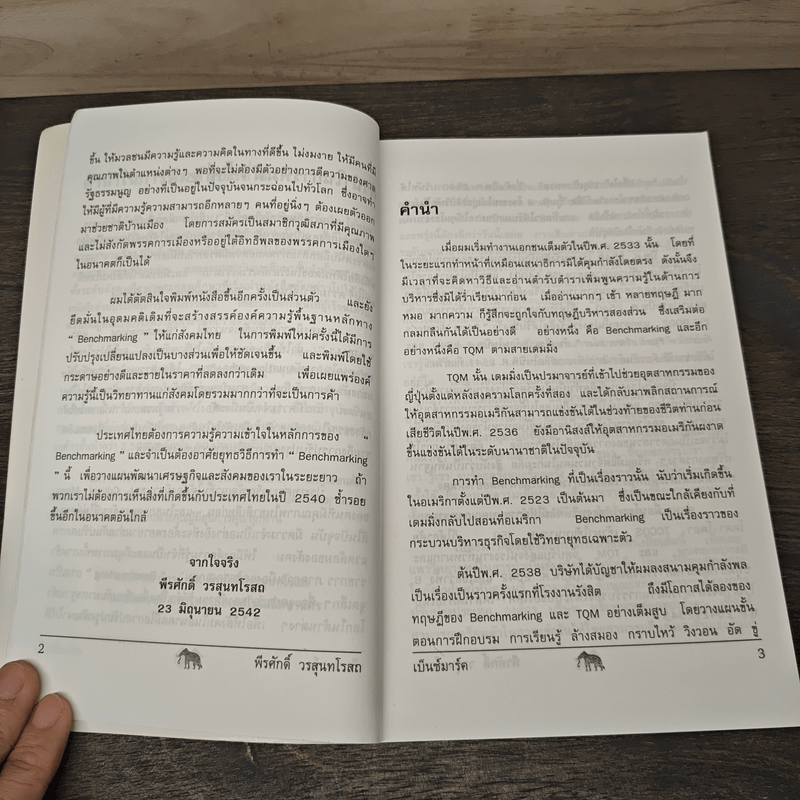 ขึ้น ให้มวลชนมีความรู้และความคิดในทางที่ดีขึ้น ไม่งมงาย ให้มีคนที่มี
คุณภาพในตำแหน่งต่างๆ พอที่จะไม่ต้องมีตัวอย่างการตีความของศาล
รัฐธรรมนูญ อย่างที่เป็นอยู่ในปัจจุบันจนกระฉ่อนไปทั่วโลก ซึ่งอาจทำ
ให้มีผู้ที่มีความรู้ความสามารถอีกหลายๆ คนที่อยู่นิ่งๆ ต้องเผยตัวออก
มาช่วยชาติบ้านเมือง โดยการสมัครเป็นสมาชิกวุฒิสภาที่มีคุณภาพ
และไม่สังกัดพรรคการเมืองหรืออยู่ใต้อิทธิพลของพรรคการเมืองใดๆ
ในอนาคตก็เป็นได้
ผมได้ตัดสินใจพิมพ์หนังสือขึ้นอีกครั้งเป็นส่วนตัว และยัง
ยึดมั่นในอุดมคติเดิมที่จะสร้างสรรค์องค์ความรู้พื้นฐานหลักทาง
“ Benchmarking ” ให้แก่สังคมไทย ในการพิมพ์ใหม่ครั้งนี้ได้มีการ
ปรับปรุงเปลี่ยนแปลงเป็นบางส่วนเพื่อให้ชัดเจนขึ้น และพิมพ์โดยใช้
กระดาษอย่างดีและขายในราคาที่ลดลงกว่าเดิม เพื่อเผยแพร่องค์
ความรู้นี้เป็นวิทยาทานแก่สังคมโดยรวมมากกว่าที่จะเป็นการค้า
ประเทศไทยต้องการความรู้ความเข้าใจในหลักการของ “
Benchmarking ” และจำเป็นต้องอาศัยยุทธวิธีการทำ “ Benchmarking
” นี้ เพื่อวางแผนพัฒนาเศรษฐกิจและสังคมของเราในระยะยาว ถ้า
พวกเราไม่ต้องการเห็นสิ่งที่เกิดขึ้นกับประเทศไทยในปี 2540 ซ้ำรอย
ขึ้นอีกในอนาคตอันใกล้
จากใจจริง
พีรศักดิ์ วรสุนทโรสถ
23 มิถุนายน 2542
2 พีรศักดิ์ วรสุนทโรสถ
คำนำ
เมื่อผมเริ่มทำงานเอกชนเต็มตัวในปีพ.ศ. 2533 นั้น โดยที่
ในระยะแรกทำหน้าที่เหมือนเสนาธิการมิได้คุมกำลังโดยตรง ดังนั้นจึง
มีเวลาที่จะคิดหาวิธีและอ่านตำรับตำราเพิ่มพูนความรู้ในด้านการ
บริหารซึ่งมิได้ร่ำเรียนมาก่อน เมื่ออ่านมากๆ เข้า หลายทฤษฎี มาก
หมอ มากความ ก็รู้สึกจะถูกใจกับทฤษฎีบริหารสองส่วน ซึ่งเสริมต่อ
กลมกลืนกันได้เป็นอย่างดี อย่างหนึ่ง คือ Benchmarking และอีก
อย่างหนึ่งคือ TQM ตามสายเดมมิ่ง
TQM นั้น เดมมิ่งเป็นปรมาจารย์ที่เข้าไปช่วยอุตสาหกรรมของ
ญี่ปุ่นตั้งแต่หลังสงครามโลกครั้งที่สอง และได้กลับมาพลิกสถานการณ์
ให้อุตสาหกรรมอเมริกันสามารถแข่งขันได้ในช่วงท้ายของชีวิตท่านก่อน
เสียชีวิตในปีพ.ศ. 2536 ยังมีอานิสงส์ให้อุตสาหกรรมอเมริกันผงาด
ขึ้นแข่งขันได้ในระดับนานาชาติในปัจจุบัน
การทำ Benchmarking ที่เป็นเรื่องราวนั้น นับว่าเริ่มเกิดขึ้น
ในอเมริกาตั้งแต่ปีพ.ศ. 2523 เป็นต้นมา ซึ่งเป็นขณะใกล้เคียงกับที่
เดมมิ่งกลับไปสอนที่อเมริกา Benchmarking เป็นเรื่องราวของ
กระบวนบริหารธุรกิจโดยใช้วิทยายุทธเฉพาะตัว
ต้นปีพ.ศ. 2538 บริษัทได้บัญชาให้ผมลงสนามคุมกำลังพล
เป็นเรื่องเป็นราวครั้งแรกที่โรงงานรังสิต ถึงมีโอกาสได้ลองของ
ทฤษฎีของ Benchmarking และ TQM อย่างเต็มสูบ โดยวางแผนขั้น
ตอนการฝึกอบรม การเรียนรู้ ล้างสมอง กราบไหว้ วิงวอน อัด ขู่
เบ็นช์มาร์ค 3